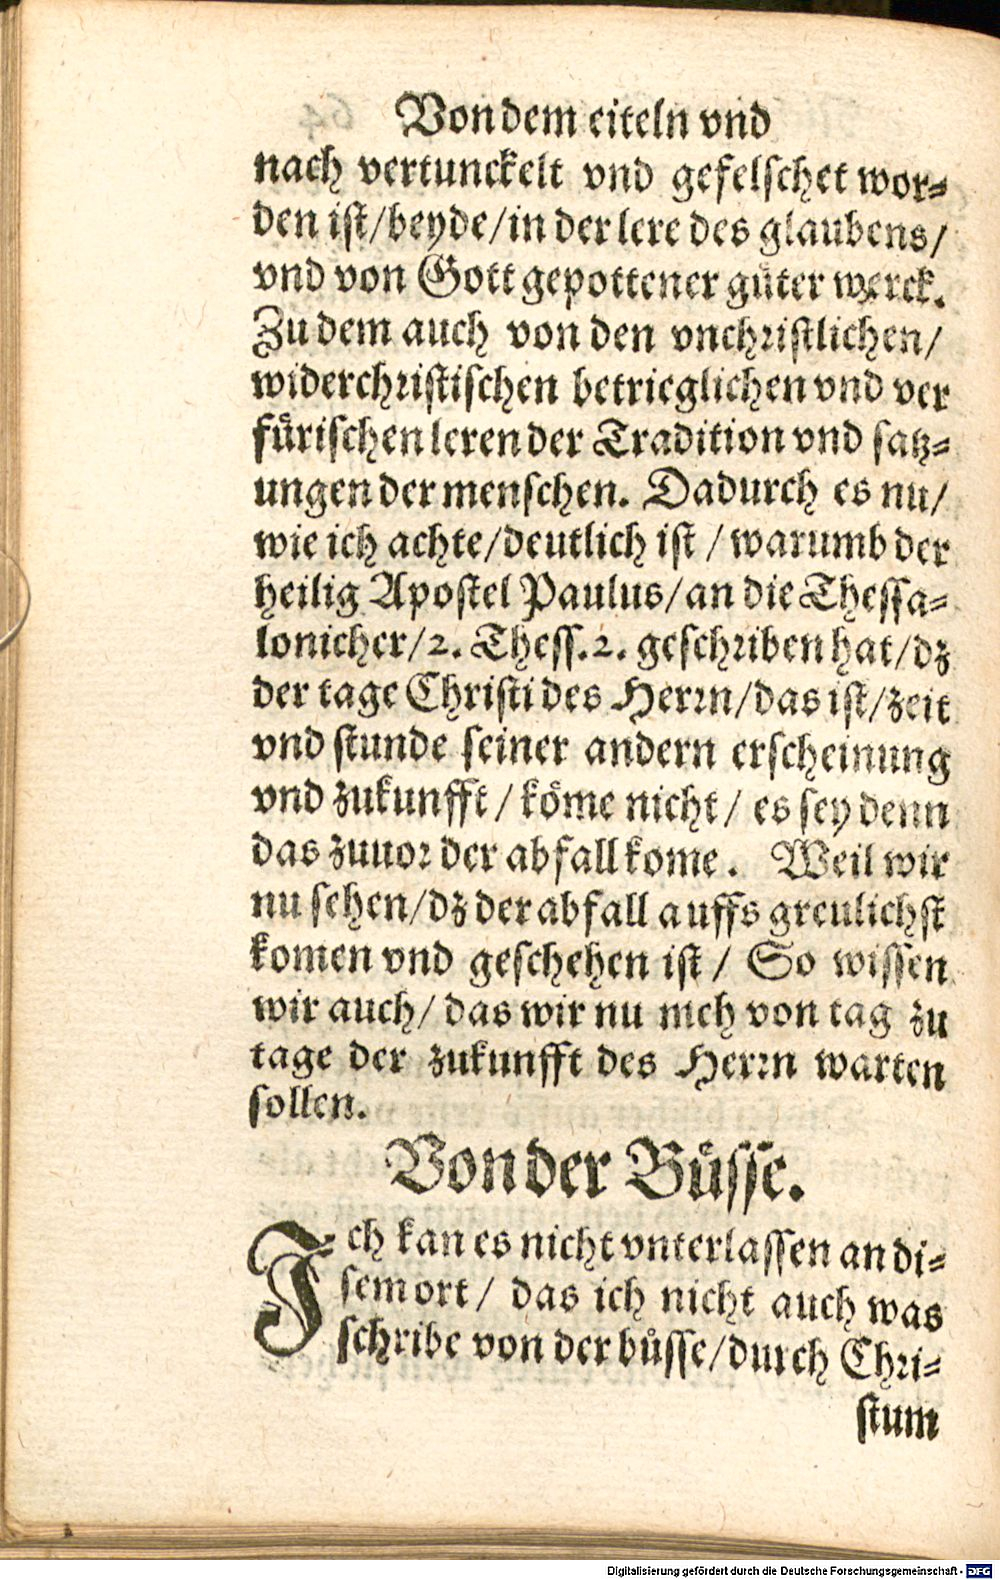 Von dem eiteln vnd
nach vertunckelt vnd gefelschet wor-
den ist/beyde/in der lere des glaubens/
vnd von Gott gepottener guͤter werck.
Zu dem auch von den vnchristlichen/
widerchristischen betrieglichen vnd ver
fuͤrischen leren der Tradition vnd satz-
ungen der menschen. Dadurch es nu/
wie ich achte/deutlich ist / warumb der
heilig Apostel Paulus/an die Thessa-
lonicher/2. Thess.2. geschriben hat/dz
der tage Christi des Herrn/das ist/zeit
vnd stunde seiner andern erscheinung
vnd zukunfft / koͤme nicht / es sey denn
das zuuor der abfall kome. Weil wir
nu sehen/dz der abfall auffs greulichst
komen vnd geschehen ist / So wissen
wir auch/ das wir nu meh von tag zu
tage der zukunfft des Herrn warten
sollen.
Von der Buͤsse.
Ich kan es nicht vnterlassen an di-
sem ort / das ich nicht auch was
schribe von der buͤsse/durch Chri-
stum
Digitalisierung gefördert durch die Deutsche Forschungsgemeinschaft - DFG